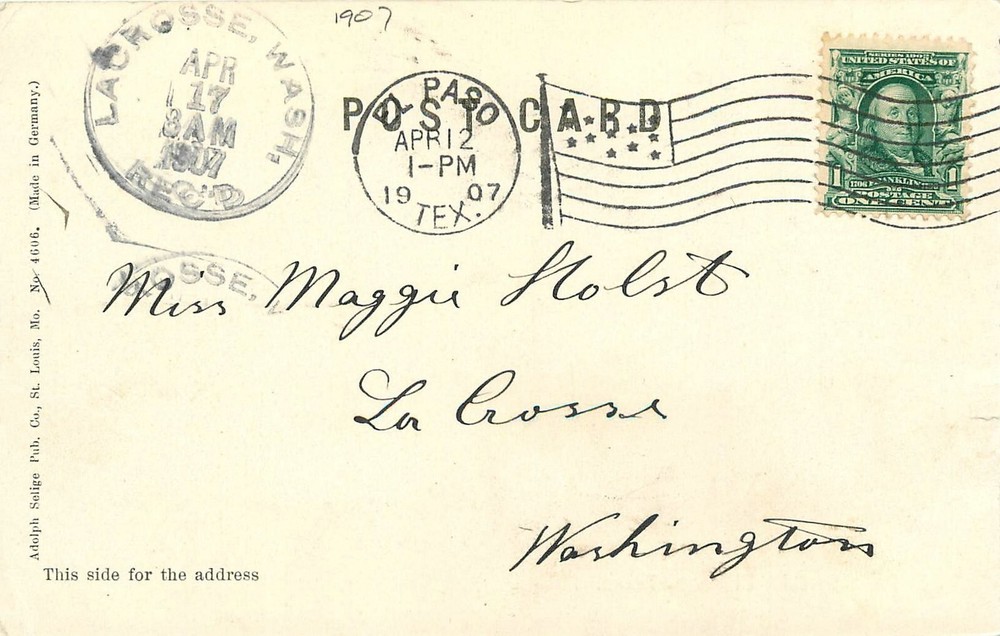 1907
LACROSSE, WASH.
APR
17
8 AM
1907
REC'D
EL PASO
APR 12
1-PM
19 07
TEX.
POST CARD
SERIES 1902
UNITED STATES OF
AMERICA
1 FRANKLIN 1
POSTAGE
ONE CENT
OSSE,
Miss Maggie Holst
La Crosse
Washington
Adolph Selige Pub. Co., St. Louis, Mo. No. 4606. (Made in Germany.)
This side for the address